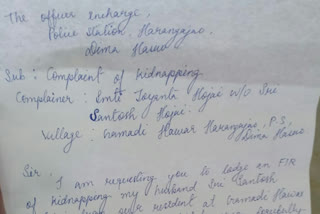 The officer encharge,
Police Station, Harangajao,
Dima Hasao
Sub : Complaent of kidnapping.
Complainer : Smti Joyanti Hojai w/o Sri
Santosh Hojai.
Village : Gramadi Hawar Harangajao, P.S,
Dima Hasao
Sir,
I am requesting you to lodge an FIR
of kidnapping my husband Sri Santosh
our resident at Gramadi Hawar